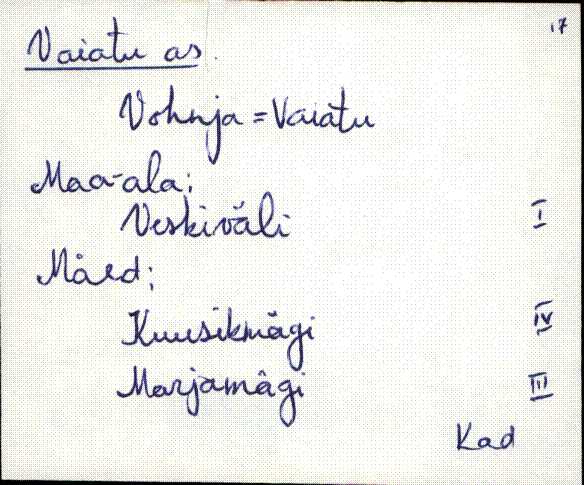 17
Vaiatu as.
Vohnja = Vaiatu
Maa-ala:
Veskiväli I
Mäed:
Kuusikmägi IV
Marjamägi III
Kad